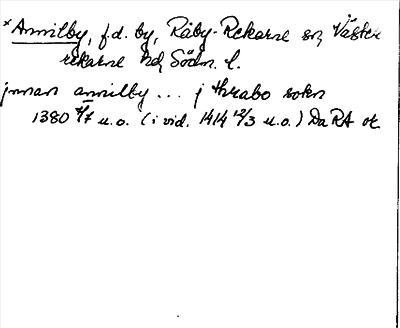 * Annilby, f.d. by, Råby-Rekarne sn, Väster
rekarne hd, Södm. l.
jnnan annilby ... j thrabo sokn
1380 4/7 u.o. (i vid. 1414 12/3 u.o.) Da RA or